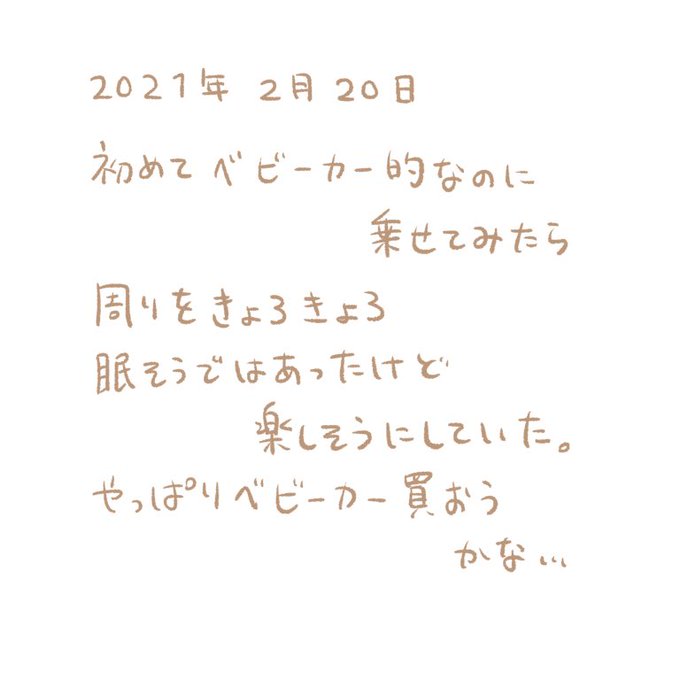 2021年 2月 20日
初めて ベビーカー的なのに
乗せてみたら
周りをきょろきょろ
眠そうではあったけど
楽しそうにしていた。
やっぱりベビーカー買おう
かな...